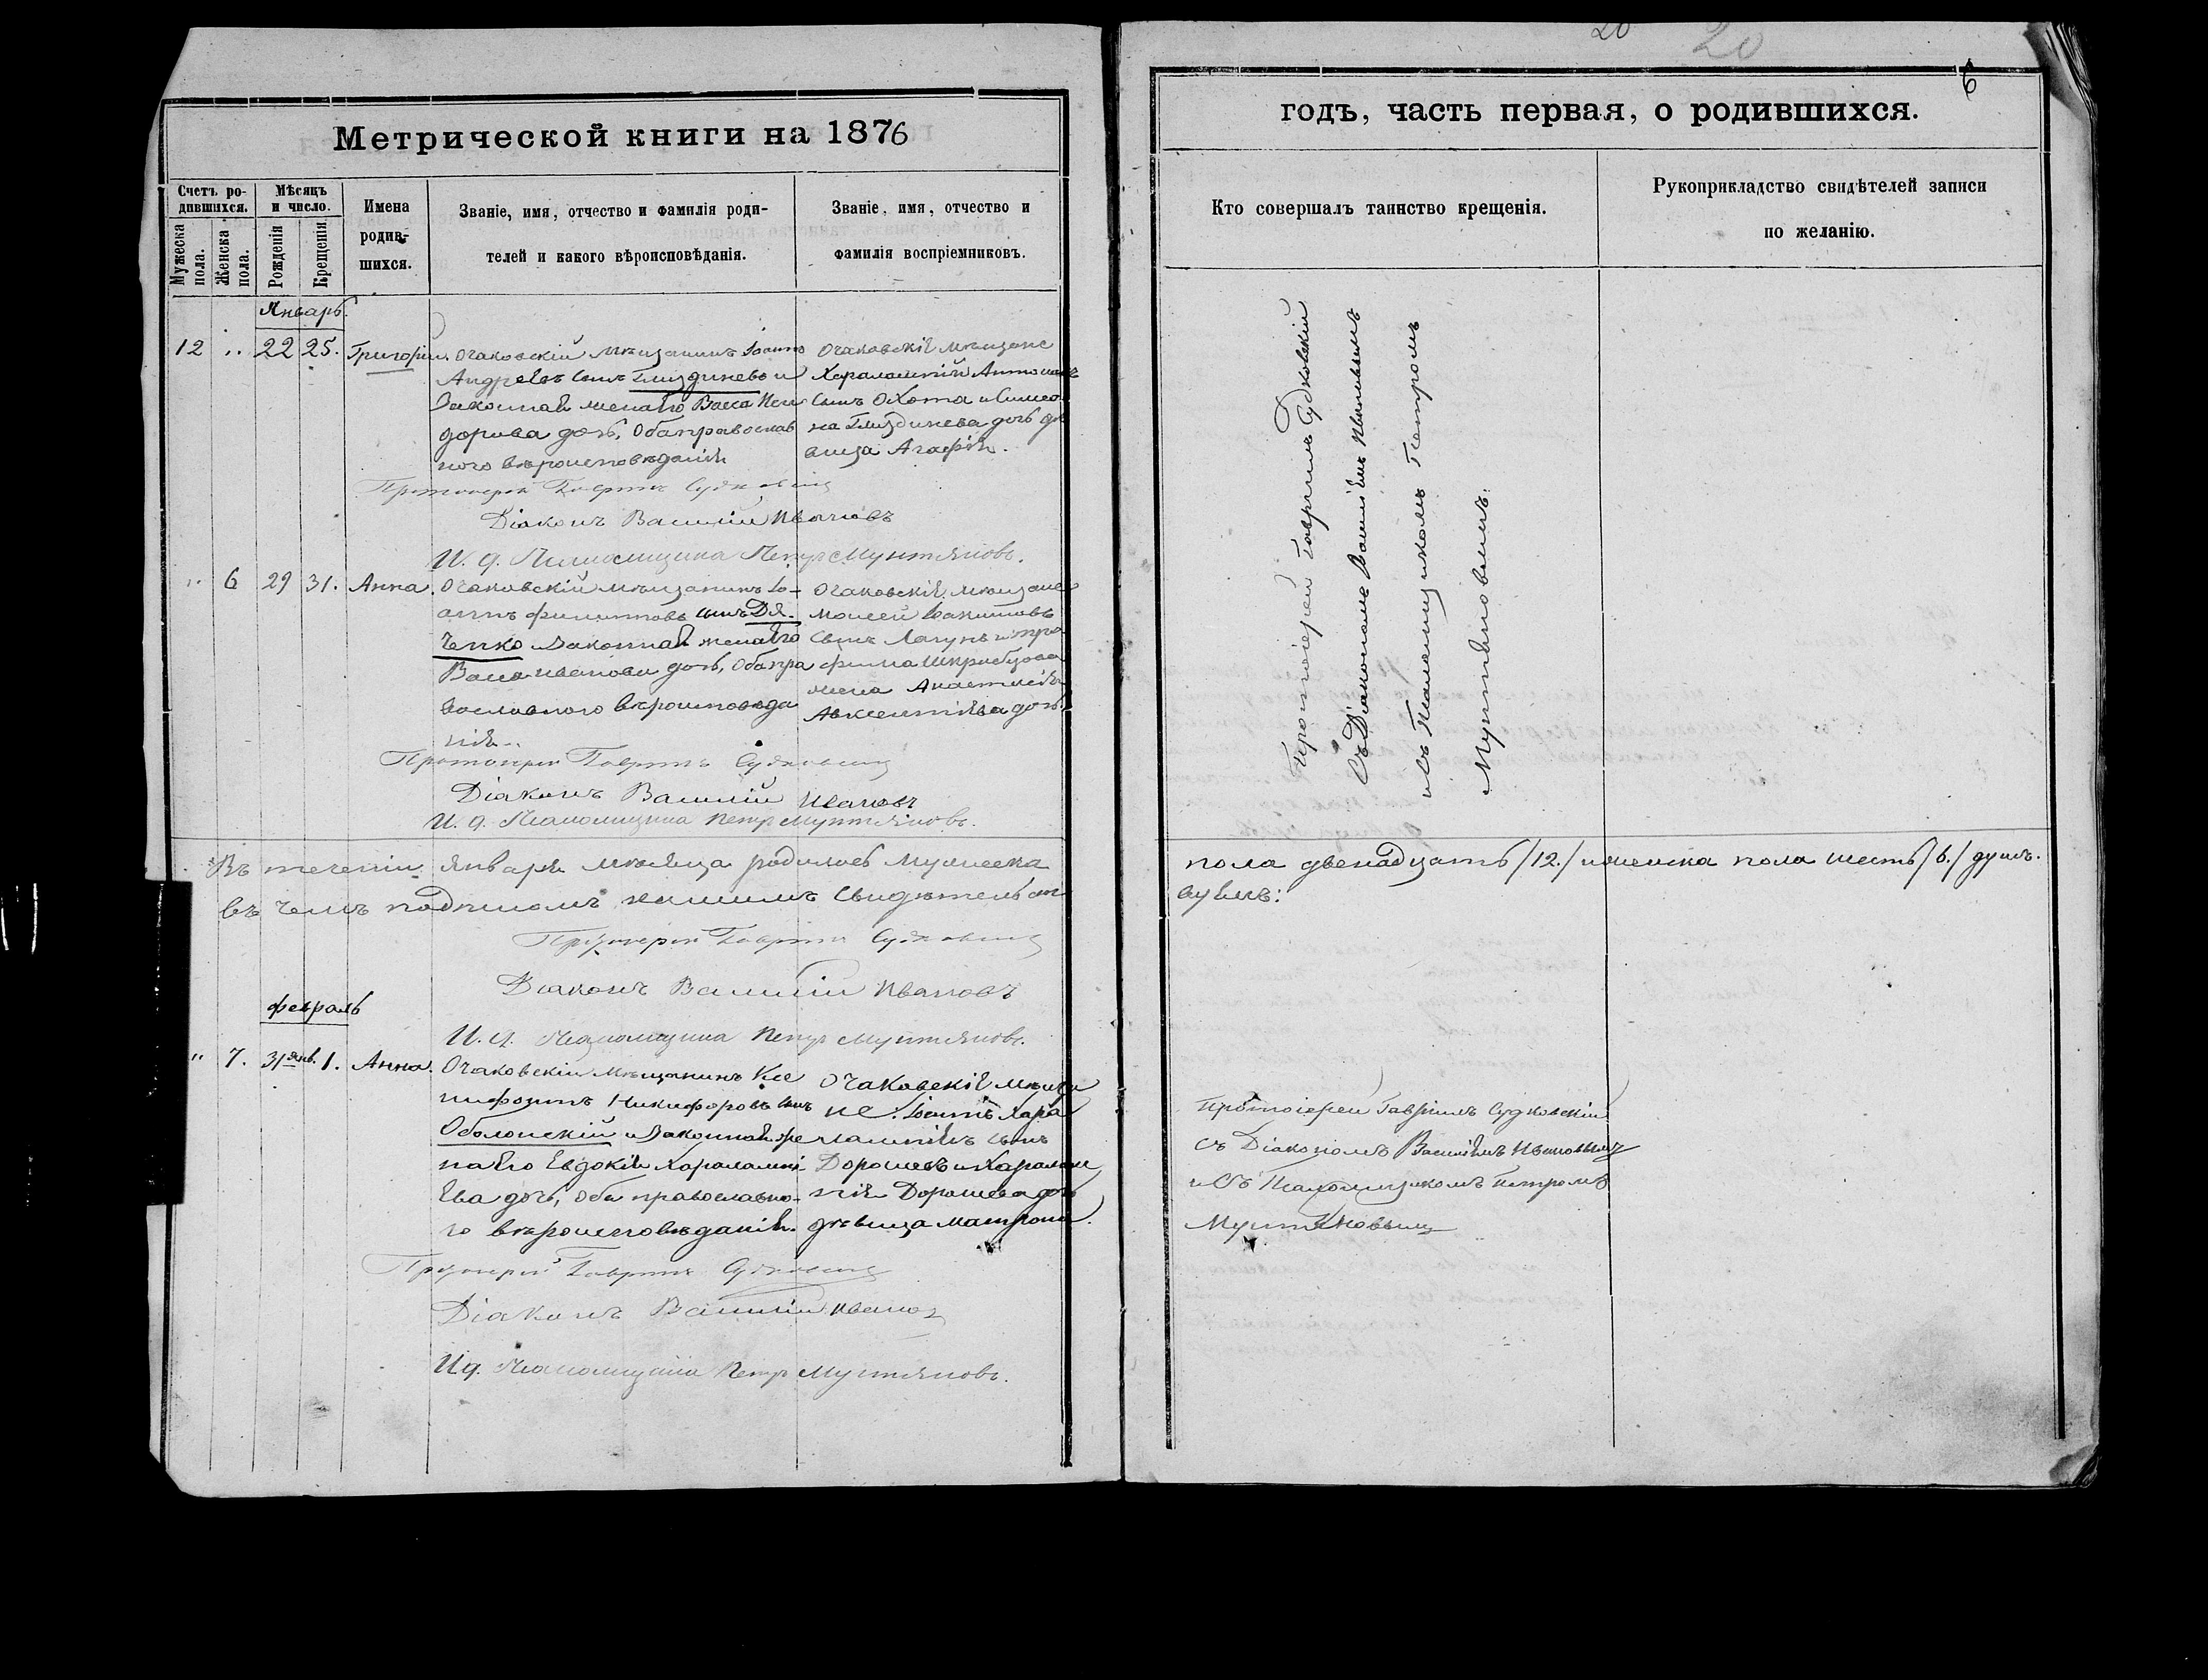 20 20
6
Метрической книги на 1876
годъ, часть первая, о родившихся.
Счетъ ро-
дившихся.
Мужеска пола.
Женска пола.
Мѣсяцъ
и число.
Рожденія
Крещенія
Имена
родив-
шихся.
Званіе, имя, отчество и фамилія роди-
телей и какого вѣроисповѣданія.
Званіе, имя, отчество и
фамилія воспріемниковъ.
Кто совершалъ таинство крещенія.
Рукоприкладство свидѣтелей записи
по желанію.
Январь.
12 " 22 25. Григорій
Очаковскій мѣщанинъ Іоаннъ
Андреевъ сынъ Гниздинево и
Законная жена его Васса Иси
дорова дочь, Оба православ
ного вѣроисповѣданія
Очаковскіе мѣщане
Харалампій Антоновъ
сынъ Охота и Симео
на Гниздинева дочь дѣ
вица Агафія.
Протоіерей Гавріилъ Судковскій
Діаконъ Василій Ивановъ
И. д. Псаломщика Петръ Мунтяновъ.
" 6 29 31. Анна.
Очаковскій мѣщанинъ Іо-
аннъ Филипповъ сынъ Дя-
ченко и Законная жена его
Васса Иванова дочь, Оба пра
вославного вѣроисповѣда
нія.
Очаковскіе мѣщане
Моисей Іоакимовъ
сынъ Лагунъ и Тро
фима Шкрабцова
жена Анастасія
Авксентіева дочь.
Протоіерей Гавріилъ Судковскій
Діаконъ Василій Ивановъ
И. д. Псаломщика Петръ Мунтяновъ.
Протоіерей Гавріилъ Судковскій
Съ Діакономъ Василіемъ Ивановымъ
и съ Псаломщикомъ Петромъ
Мунтяновымъ.
Въ теченіи Января мѣсяца родилось Мужеска
пола двенадцать /12./ и женска пола шесть /6./ душъ.
въ чемъ подписомъ нашимъ свидѣтельст
вуемъ:
Протоіерей Гавріилъ Судковскій
Діаконъ Василій Ивановъ
И. д. Псаломщика Петръ Мунтяновъ.
Февраль
" 7. 31 янв. 1. Анна.
Очаковскій мѣщанинъ Ксе
нифонтъ Никифоровъ сынъ
Оболонскій и Законная же
на его Евдокія Харалампі
ева дочь, оба православно-
го вѣроисповѣданія.
Очаковскіе мѣща
не: Іоаннъ Хара
лампіевъ сынъ
Дорошевъ и Харалам
пія Дорошева дочь
дѣвица Матрона.
Протоіерей Гавріилъ Судковскій
съ Діакономъ Василіемъ Ивановымъ
и съ Псаломщикомъ Петромъ
Мунтяновымъ
Протоіерей Гавріилъ Судковскій
Діаконъ Василій Ивановъ
И. д. Псаломщика Петръ Мунтяновъ.